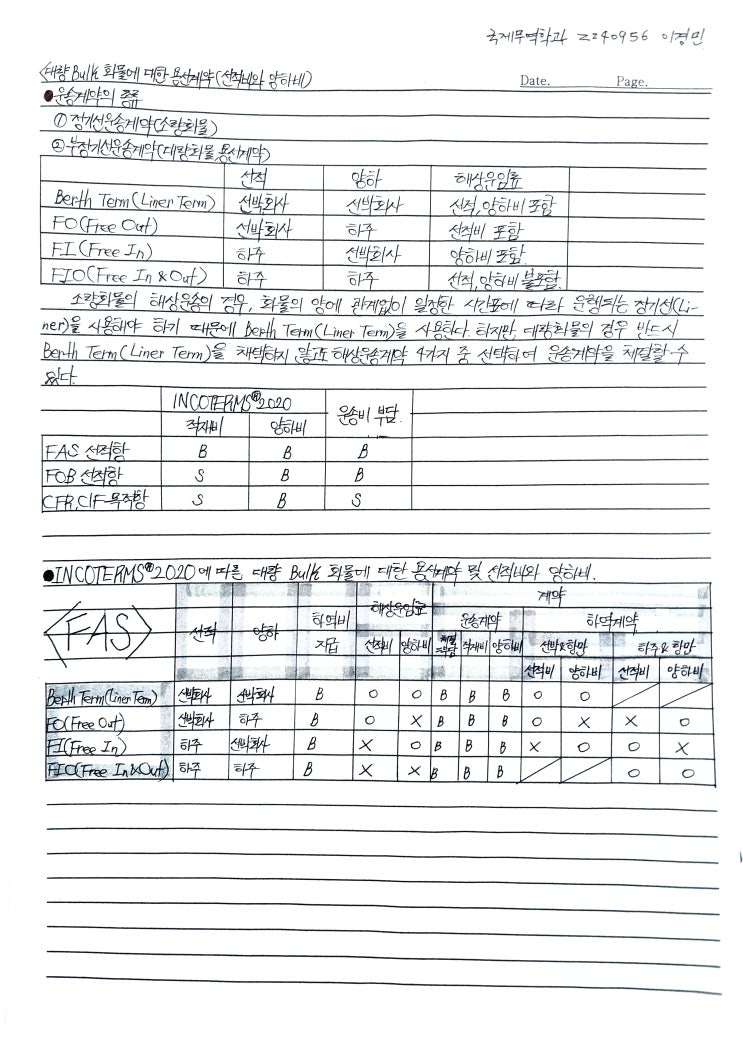 국제무역학과 2240956 이경민
<대량 Bulk 화물에 대한 용선계약(선적비와 양하비)
Date. Page.
●운송계약의 종류
① 정기선운송계약(소량화물)
② 부정기선운송계약(대량화물 용선계약)
선적 양하 해상운임료
Berth Term(Liner Term) 선박회사 선박회사 선적,양하비 포함
FO(Free Out) 선박회사 하주 선적비 포함
FI(Free In) 하주 선박회사 양하비 포함
FIO(Free In & Out) 하주 하주 선적,양하비 불포함
소량화물의 해상운송의 경우, 화물의 양에 관계없이 일정한 시간표에 따라 운행되는 정기선(Li-
ner)을 사용해야 하기 때문에 Berth Term(Liner Term)을 사용한다. 하지만, 대량화물의 경우 반드시
Berth Term(Liner Term)을 채택하지 않고도 해상운송계약 4가지 중 선택하여 운송계약을 체결할 수
있다.
INCOTERMS®2020 운송비 부담
적재비 양하비
FAS 선적항 B B B
FOB 선적항 S B B
CFR,CIF-목적항 S B S
●INCOTERMS®2020에 따른 대량 Bulk 화물에 대한 용선계약 및 선적비와 양하비.
계약
<FAS> 선적 양하 하역비 지급 해상운임료 운송계약 하역계약
선적비 양하비 체결 적재비 양하비 선박&항만 하주&항만
선적비 양하비 선적비 양하비
Berth Term(Liner Term) 선박회사 선박회사 B O O B B B O O
FO(Free Out) 선박회사 하주 B O X B B B O X X O
FI(Free In) 하주 선박회사 B X O B B B X O O X
FIO(Free In&Out) 하주 하주 B X X B B B O O